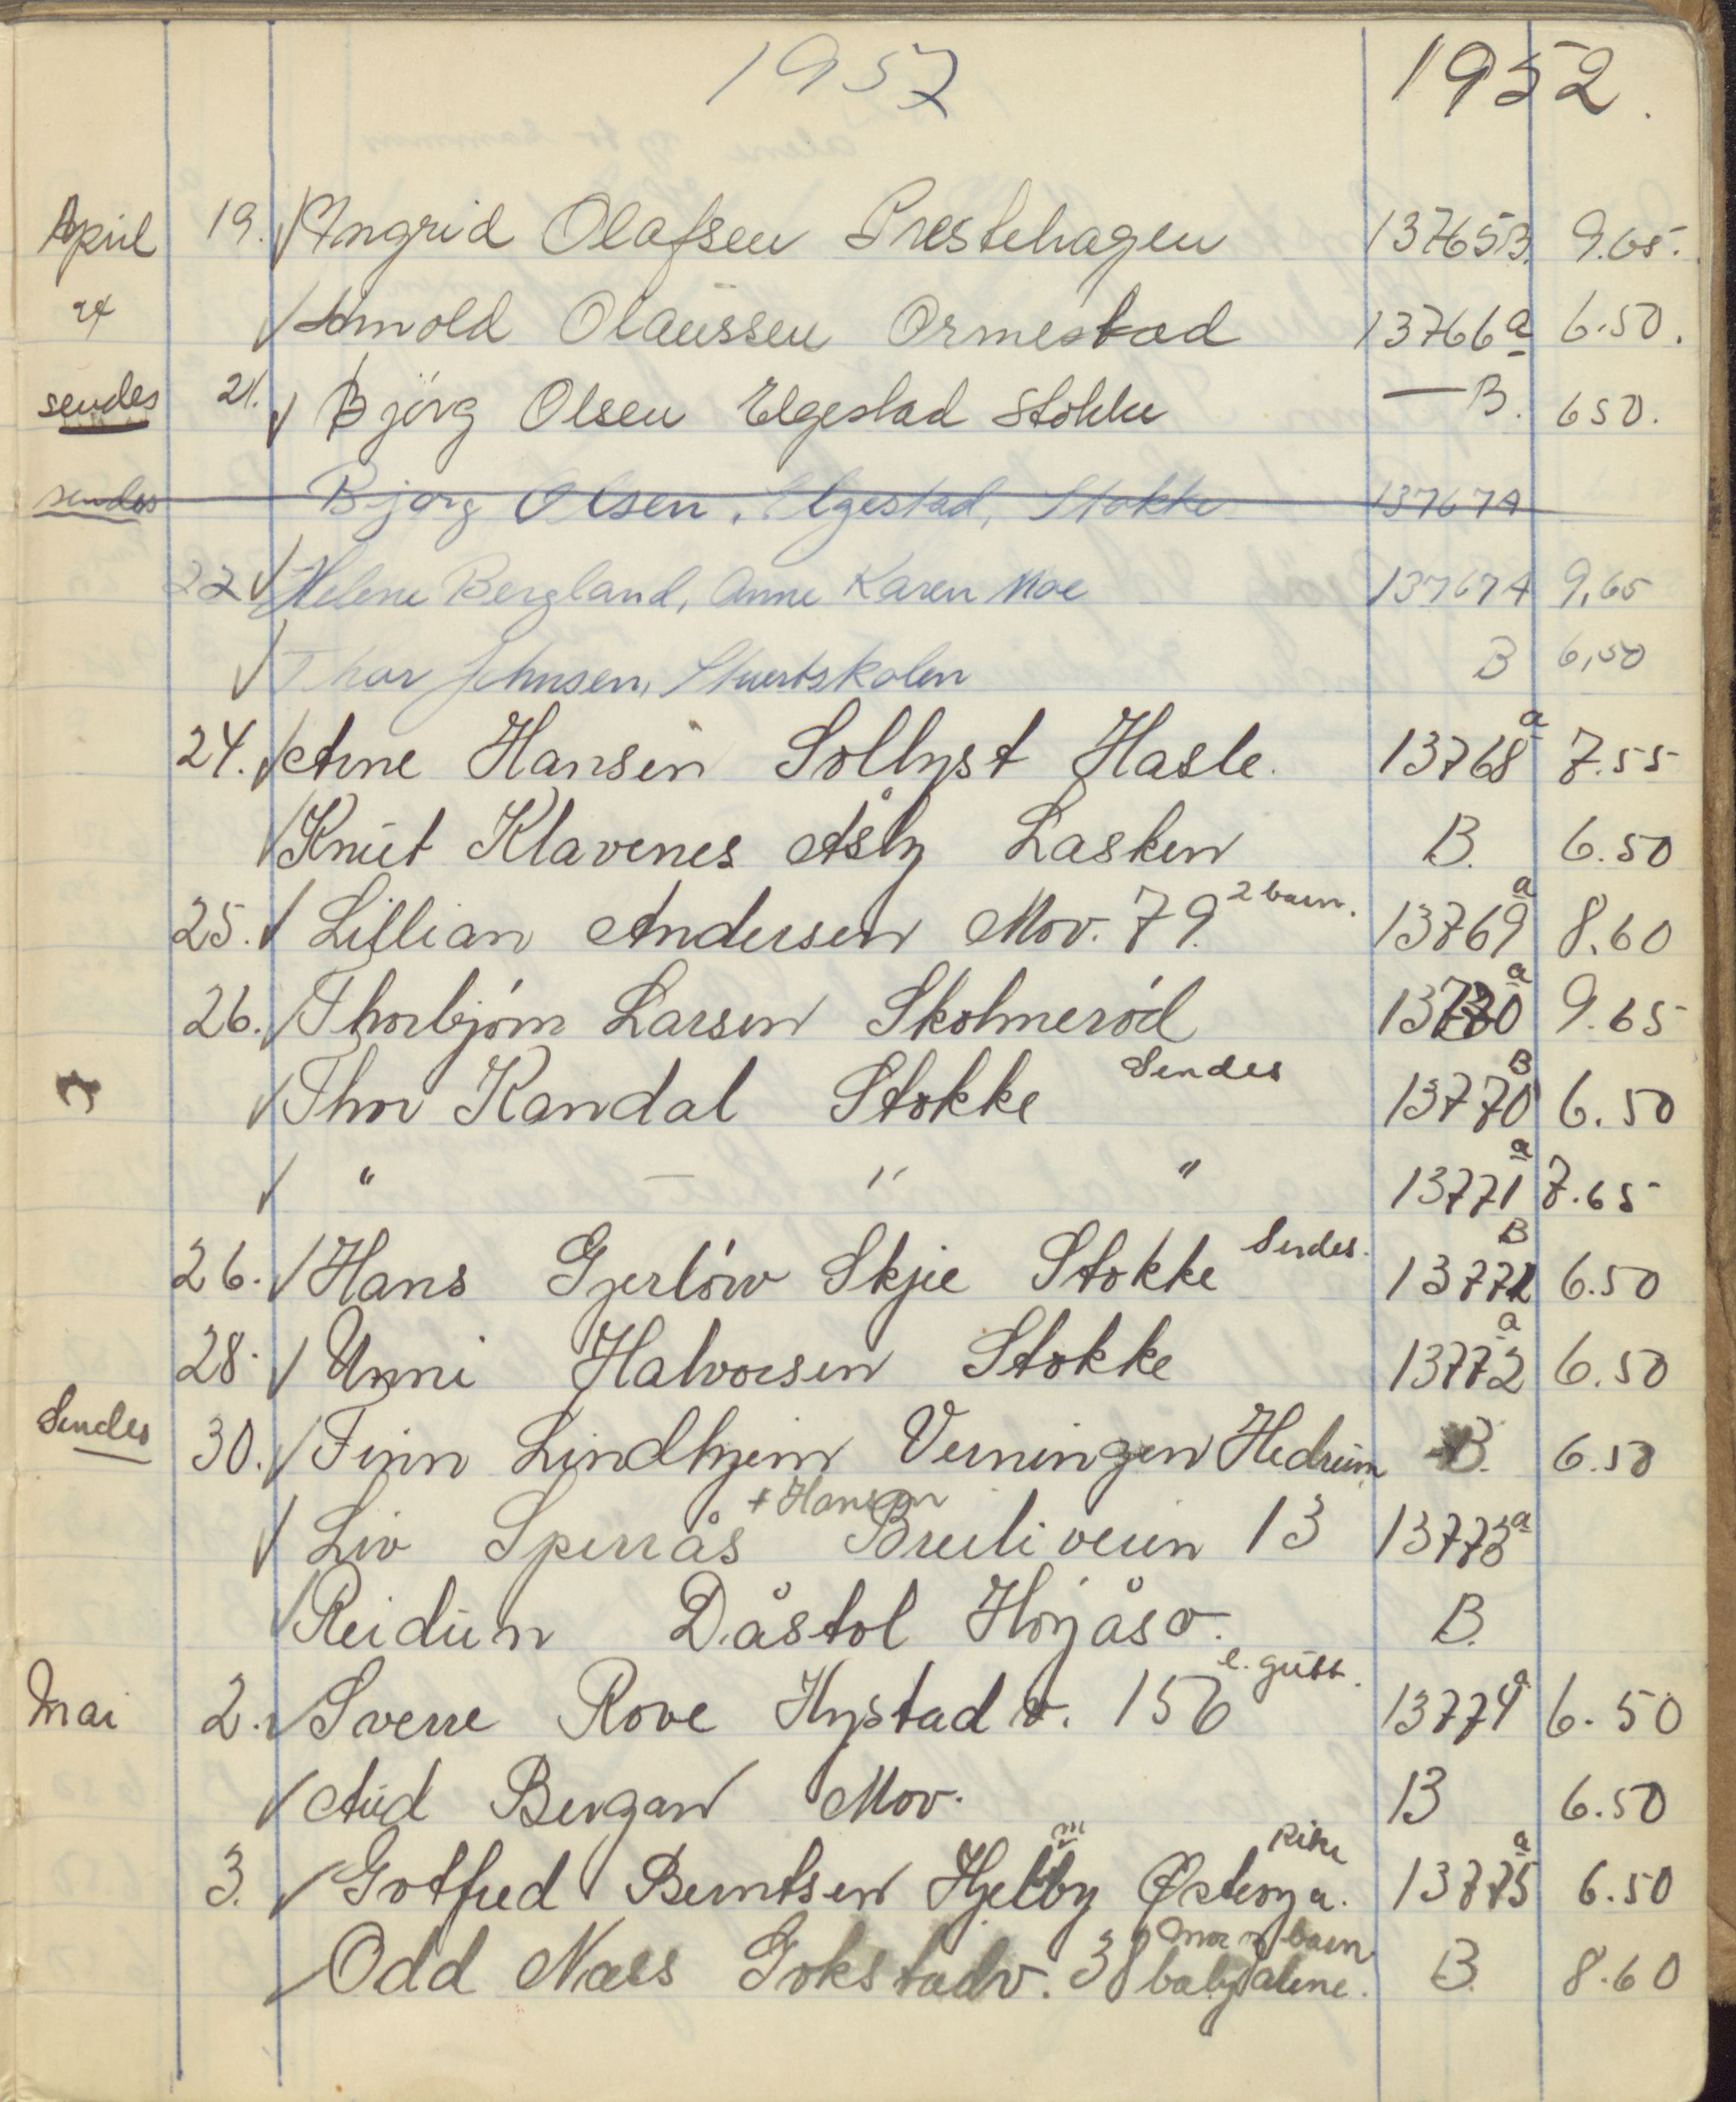 1952 1952.
April 19. Ingrid Olafsen Prestehagen 13765B. 9.65.
Arnold Olaüssen Ormestad 13766a 6.50.
sendes 21. Björg Olsen Elgestad Stokke — B. 650.
sendes Bjørg Olsen, Elgestad, Stokke 13767A
22 Helene Bergland, Anne Karen Moe 13767A 9,65
Thor Johnsen, Stuertskolen B 6,50
24. Arne Hansen Sollyst Hasle. 13768a 7.55
Knüt Klavenes Åsly Lasken B. 6.50
25. Lillian Andersen Mov. 79. 2 barn. 13769a 8.60
26. Thorbjörn Larsen Skolmeröd 13770a 9.65
Thor Kandal Stokke Sendes 13770B 6.50
" — " " 13771a 7.65
26. Hans Gjerlöw Skjee Stokke Sendes. 13771B 6.50
28. Unni Halvorsen Stokke 13772a 6.50
Sendes 30. Finn Lindhjem Verningen Hedrüm B. 6.50
Liv Sperrås + Hansen Breiliveien 13 13773a
Reidün Dåstöl Höyåsv. B.
Mai 2. Sverre Rove Hystadv. 156 l. gütt. 13774a 6.50
Aüd Bergan Mov. B 6.50
3. Gotfred Berntsen Hjemby Østerøya. 13775a 6.50
Odd Næss Gokstadv. 38 mor n barn baby alene. B. 8.60